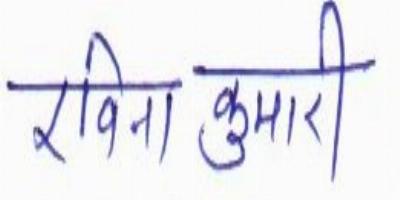 रविना कुमारी